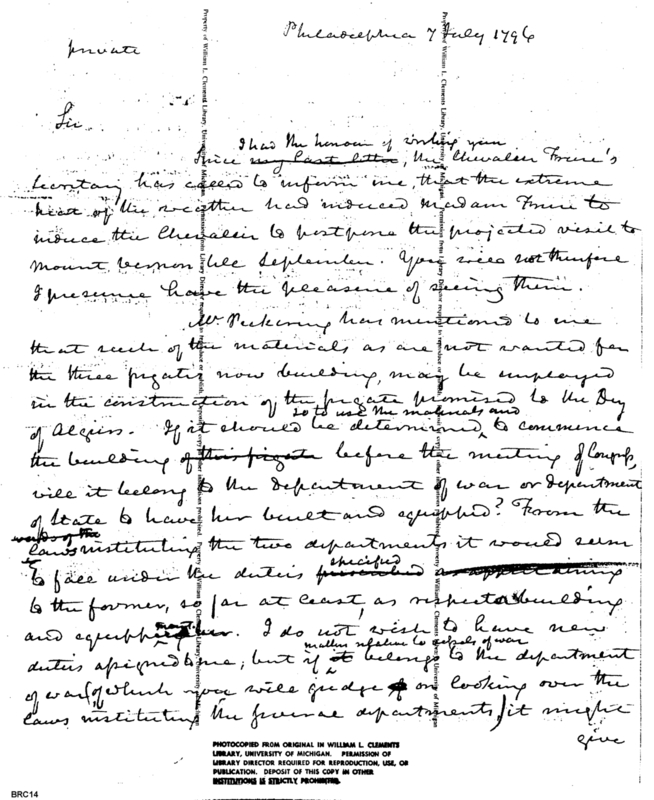 Philadelphia 7 July 1796
private
Sir
I had the honour of writing you
Since my last letter, the Chevalier Freire's
Secretary has called to inform me, that the extreme
heat of the weather had induced Madam Freire to
induce the Chevalier to postpone the projected visit to
Mount Vernon till September. You will not therefore
I presume have the pleasure of seeing them.
Mr. Pickering has mentioned to me
that such of the materials as are not wanted for
the three frigates now building, may be employed
in the construction of the frigate promised to the Dey
so to use the materials and
of Algiers. If it should be determined, to commence
the building of this frigate before the meeting of Congress,
will it belong to the department of war or department
of State to have her built and equipped? From the
words of the
laws instituting the two departments it would seem
specified
to fall under the duties prescribed as appertaining
to the former, so far at least, as respects building
and equipping her. I do not wish to have new
matters relative to vessels of war
duties assigned to me; but if it belongs to the department
of war (of which you will judge on looking over the
laws instituting the several departments) it might
give
Property of William L. Clements Library, University of Michigan. Permission from Library Director required
Property of William L. Clements Library, University of Michigan. Permission from Library Director required
PHOTOCOPIED FROM ORIGINAL IN WILLIAM L. CLEMENTS
LIBRARY, UNIVERSITY OF MICHIGAN. PERMISSION OF
LIBRARY DIRECTOR REQUIRED FOR REPRODUCTION, USE, OR
PUBLICATION. DEPOSIT OF THIS COPY IN OTHER
INSTITUTIONS IS STRICTLY PROHIBITED.
BRC14